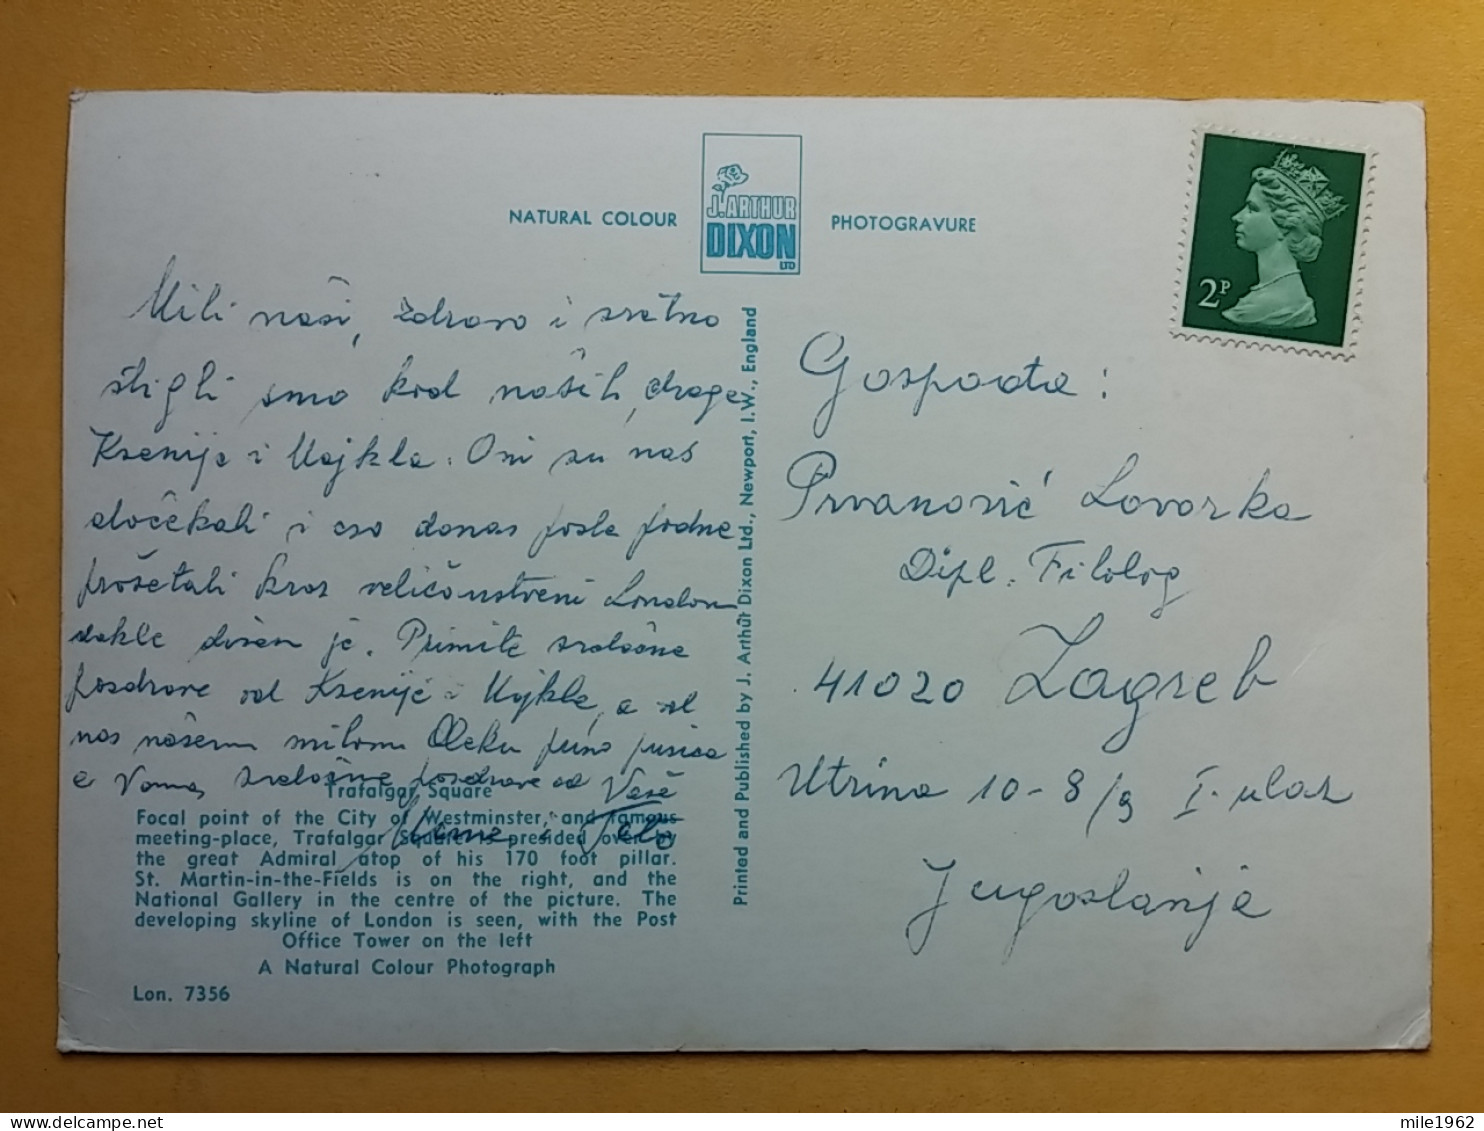 NATURAL COLOUR
J. ARTHUR
DIXON
LTD
PHOTOGRAVURE
2P
Mili naši, zdravo i sretno
stigli smo kod naših, drage
Ksenije i Majkla. Oni su nas
dočekali i evo danas posle podne
prošetali kroz veličanstveni London
dakle divan je. Primite srdačne
pozdrave od Ksenije i Majkla, a od
nas našem milom puno pusica
a Vama srdačne pozdrave od Vaše
Mame i Tate
Trafalgar Square
Focal point of the City of Westminster, and famous
meeting-place, Trafalgar Square is presided over by
the great Admiral atop of his 170 foot pillar.
St. Martin-in-the-Fields is on the right, and the
National Gallery in the centre of the picture. The
developing skyline of London is seen, with the Post
Office Tower on the left
A Natural Colour Photograph
Lon. 7356
Printed and Published by J. Arthur Dixon Ltd., Newport, I.W., England
Gospođa:
Prvanović Lovorka
Dipl. Filolog
41020 Zagreb
Utrina 10-8/9 I. ulaz
Jugoslavija
mile1962